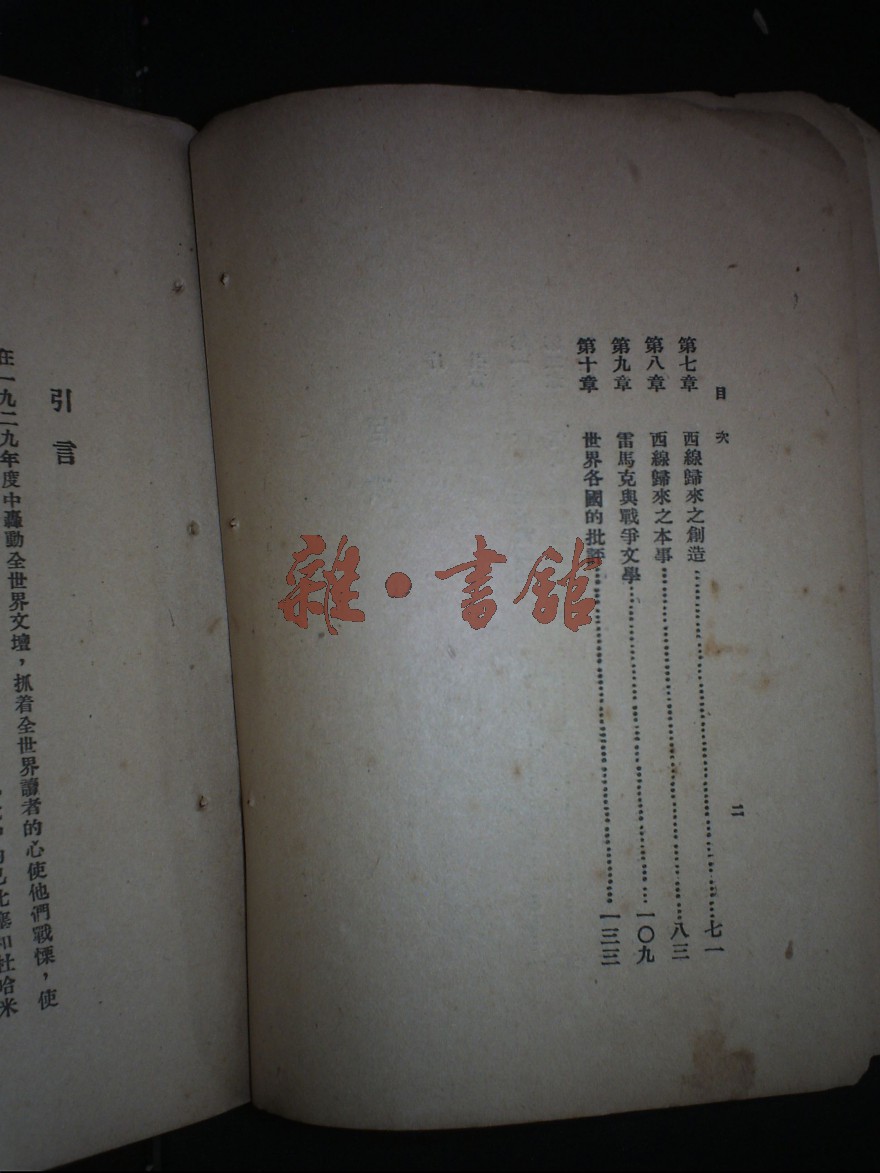 目次
二
第七章 西線歸來之創造……七一
第八章 西線歸來之本事……八三
第九章 雷馬克與戰爭文學……一〇九
第十章 世界各國的批評……一三三
雜·書館
引言
在一九二九年度中轟動全世界文壇,抓着全世界讀者的心使他們戰慄,使
和杜哈米